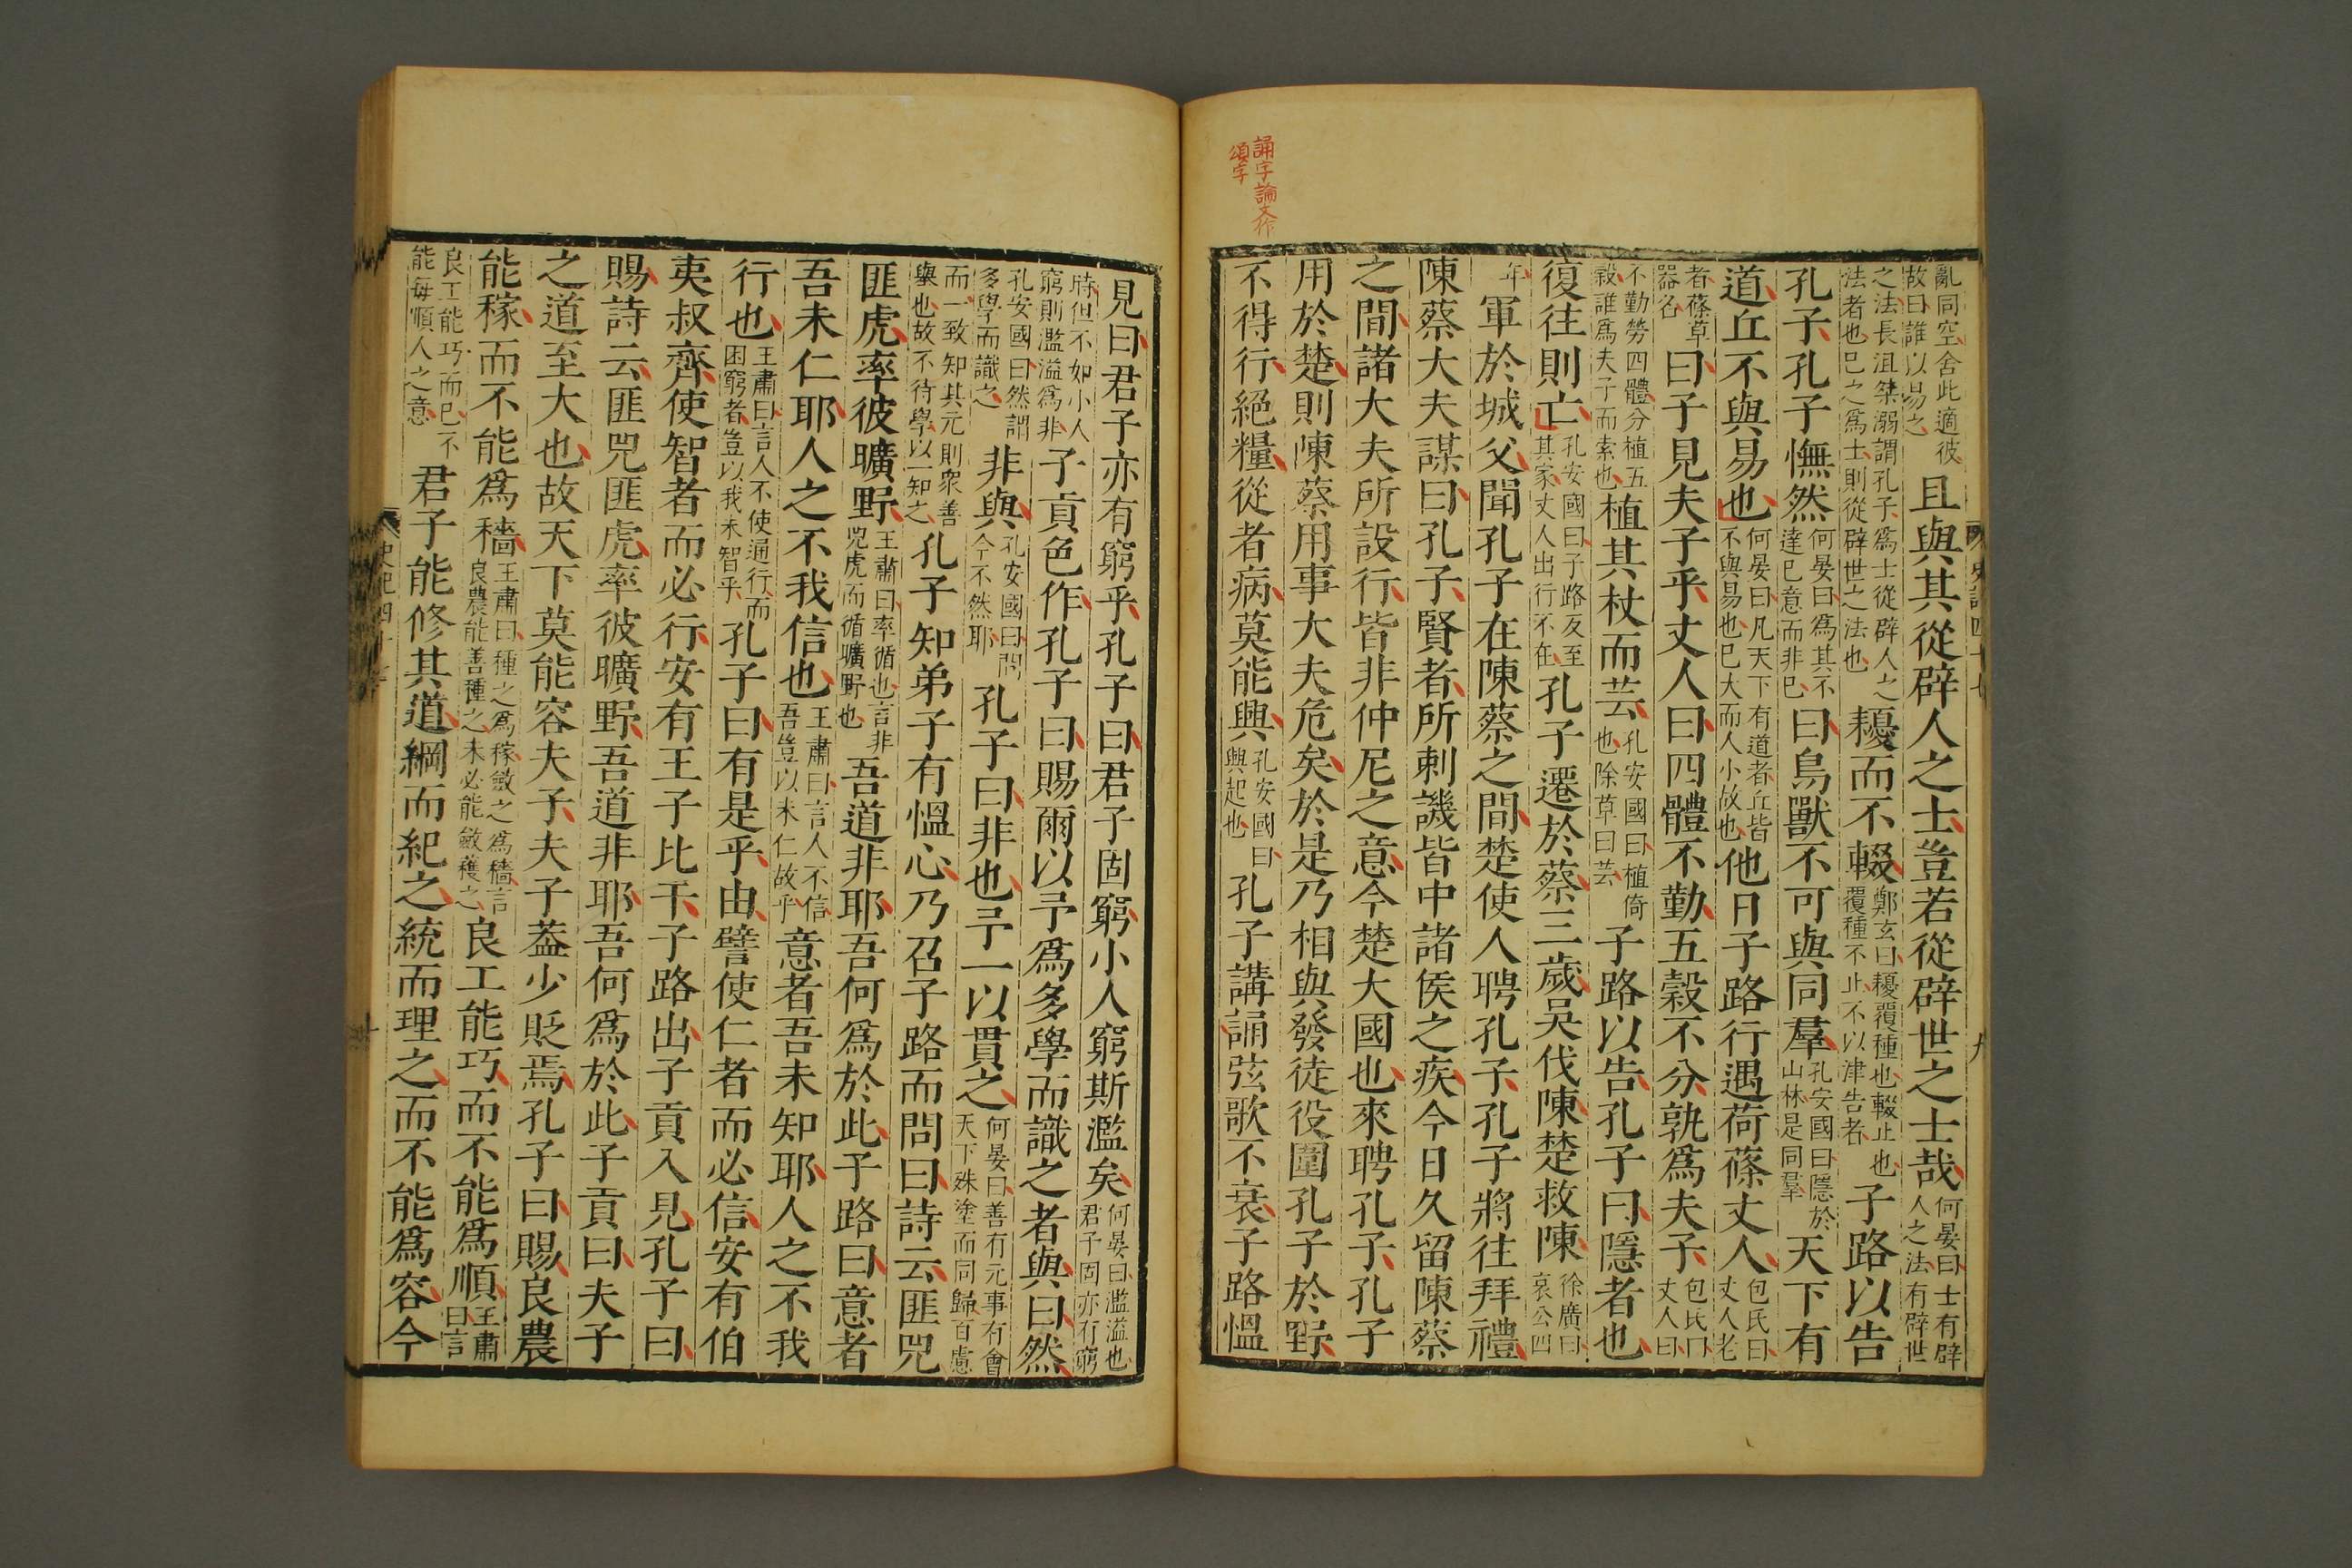 誦字論文作
頌字
亂同空舍此適彼故曰誰以易之且與其從辟人之士豈若從辟世之士哉何晏曰士有辟人之法有辟世
之法長沮桀溺謂孔子爲士從辟人之法者也已之爲士則從辟世之法也耰而不輟鄭玄曰耰覆種也輟止也覆種不止不以津告者子路以告
孔子孔子憮然何晏曰爲其不達已意而非已曰鳥獸不可與同羣孔安國曰隱於山林是同羣天下有
道丘不與易也何晏曰凡天下有道者丘皆不與易也已大而人小故也他日子路行遇荷蓧丈人包氏曰丈人老
者蓧草器名曰子見夫子乎丈人曰四體不勤五穀不分孰爲夫子包氏曰丈人曰
不勤勞四體分植五穀誰爲夫子而索也植其杖而芸孔安國曰植倚也除草曰芸子路以告孔子曰隱者也
復往則亡孔安國曰子路反至其家丈人出行不在孔子遷於蔡三歲吳伐陳楚救陳徐廣曰哀公四
年軍於城父聞孔子在陳蔡之間楚使人聘孔子孔子將往拜禮
陳蔡大夫謀曰孔子賢者所刺譏皆中諸侯之疾今日久留陳蔡
之間諸大夫所設行皆非仲尼之意今楚大國也來聘孔子孔子
用於楚則陳蔡用事大夫危矣於是乃相與發徒役圍孔子於野
不得行絕糧從者病莫能興孔安國曰興起也孔子講誦弦歌不衰子路慍
見曰君子亦有窮乎孔子曰君子固窮小人窮斯濫矣何晏曰濫溢也君子固亦有窮
時但不如小人窮則濫溢爲非子貢色作孔子曰賜爾以予爲多學而識之者與曰然
孔安國曰然謂多學而識之非與孔安國曰問今不然耶孔子曰非也予一以貫之何晏曰善有元事有會天下殊塗而同歸百慮
而一致知其元則衆善舉也故不待學以一知之孔子知弟子有慍心乃召子路而問曰詩云匪兕
匪虎率彼曠野王肅曰率循也言非兕虎而循曠野也吾道非耶吾何爲於此子路曰意者
吾未仁耶人之不我信也王肅曰言人不信吾豈以未仁故乎意者吾未知耶人之不我
行也王肅曰言人不使通行而困窮者豈以我未智乎孔子曰有是乎由譬使仁者而必信安有伯
夷叔齊使智者而必行安有王子比干子路出子貢入見孔子曰
賜詩云匪兕匪虎率彼曠野吾道非耶吾何爲於此子貢曰夫子
之道至大也故天下莫能容夫子夫子蓋少貶焉孔子曰賜良農
能稼而不能爲穡王肅曰種之爲稼斂之爲穡言良農能善種之未必能斂穫之良工能巧而不能爲順王肅曰言
良工能巧而已不能每順人之意君子能修其道綱而紀之統而理之而不能爲容今